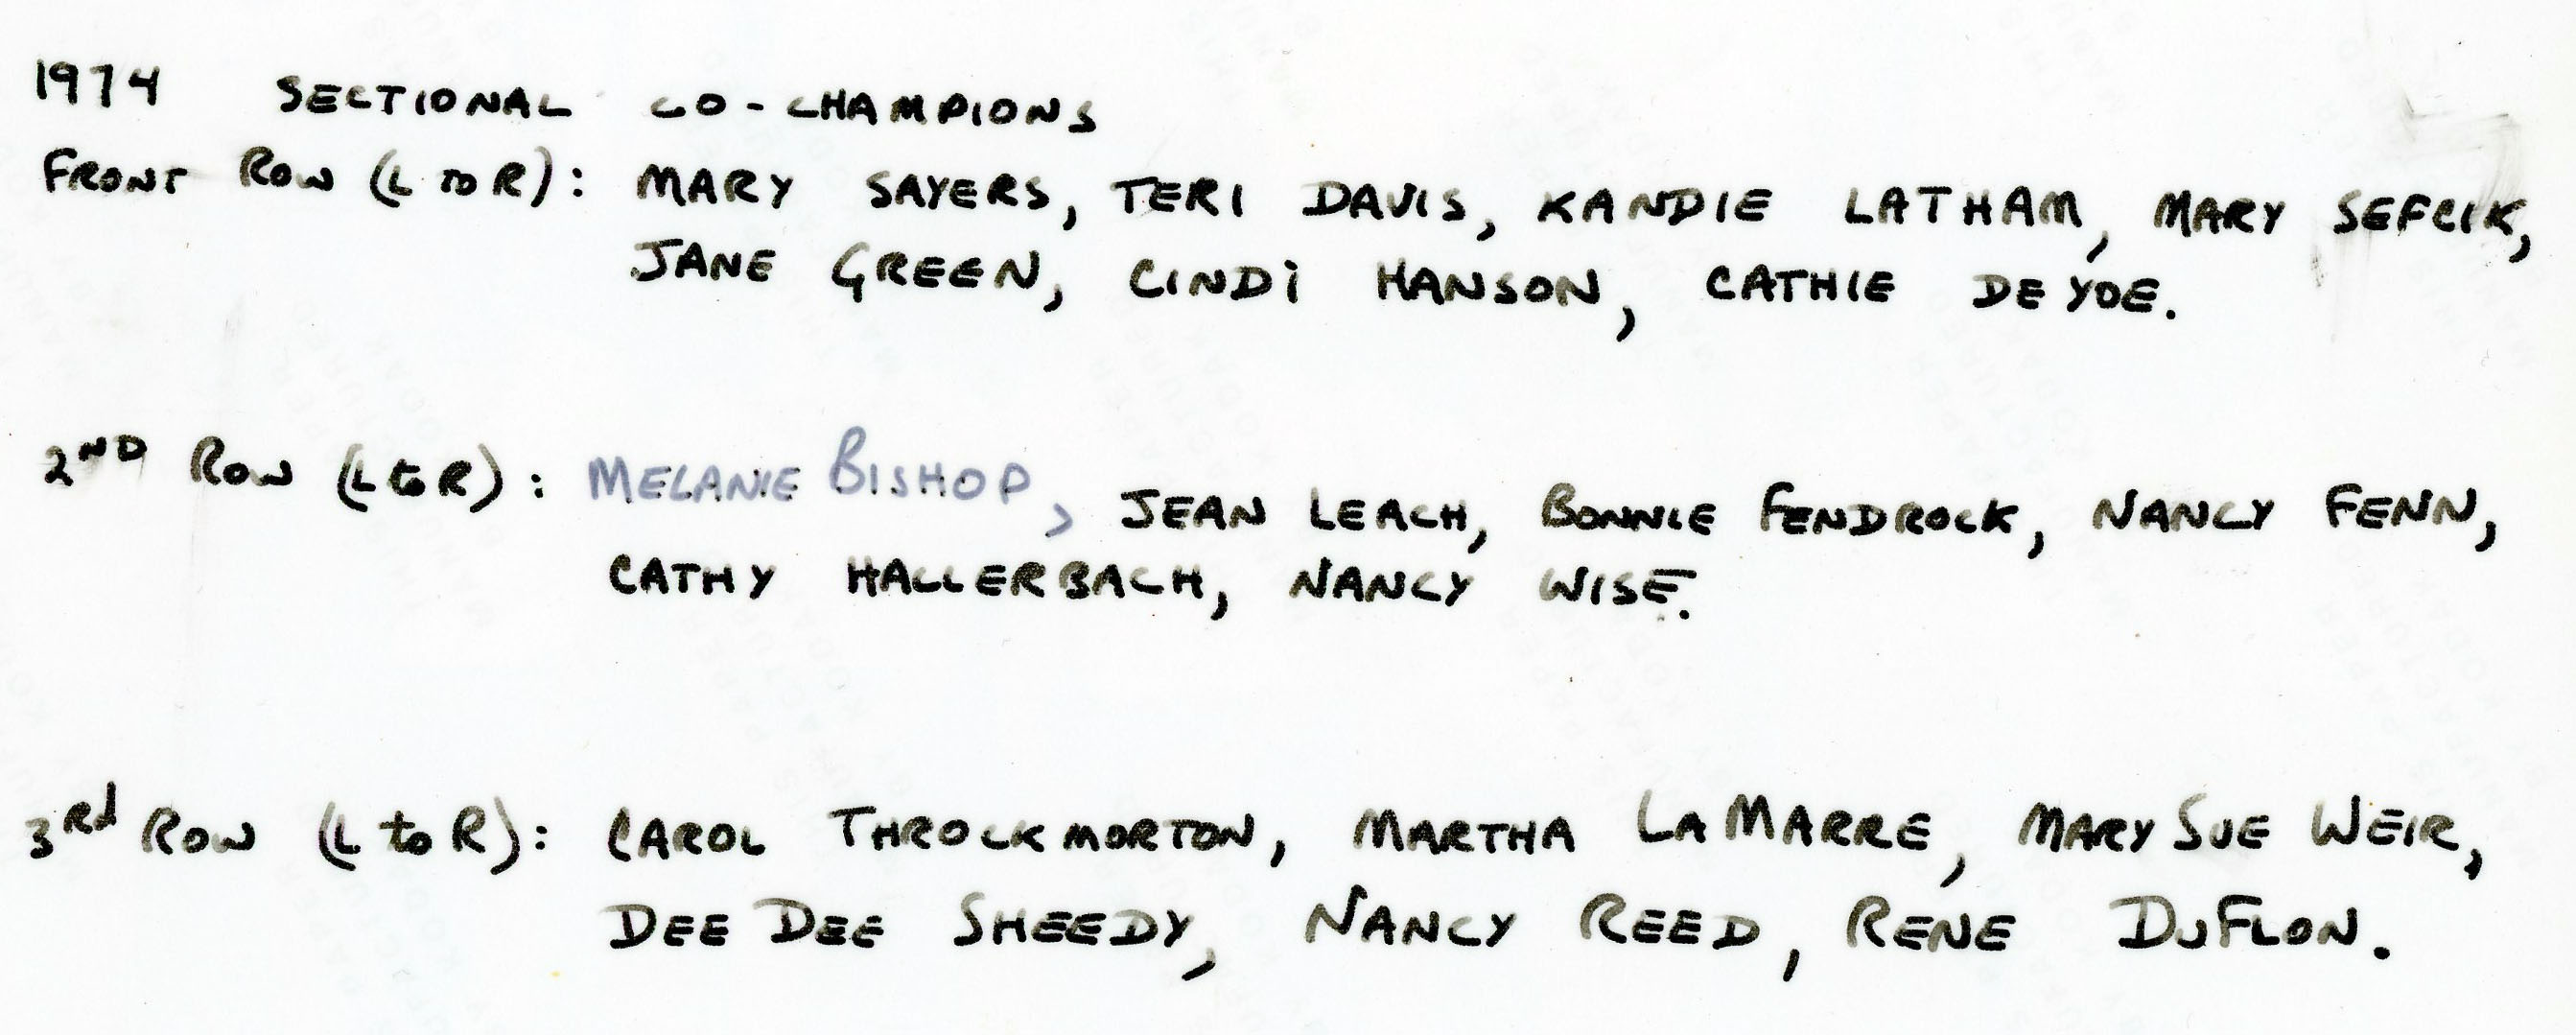 1974 SECTIONAL CO-CHAMPIONS
FRONT ROW (L TO R): MARY SAYERS, TERI DAVIS, KANDIE LATHAM, MARY SEFCIK,
JANE GREEN, CINDI HANSON, CATHIE DE YOE.
2ND ROW (L to R): MELANIE BISHOP, JEAN LEACH, BONNIE FENDROCK, NANCY FENN,
CATHY HALLERBACH, NANCY WISE.
3Rd ROW (L to R): CAROL THROCKMORTON, MARTHA LAMARRE, MARY SUE WEIR,
DEE DEE SHEEDY, NANCY REED, RENE DUFLON.